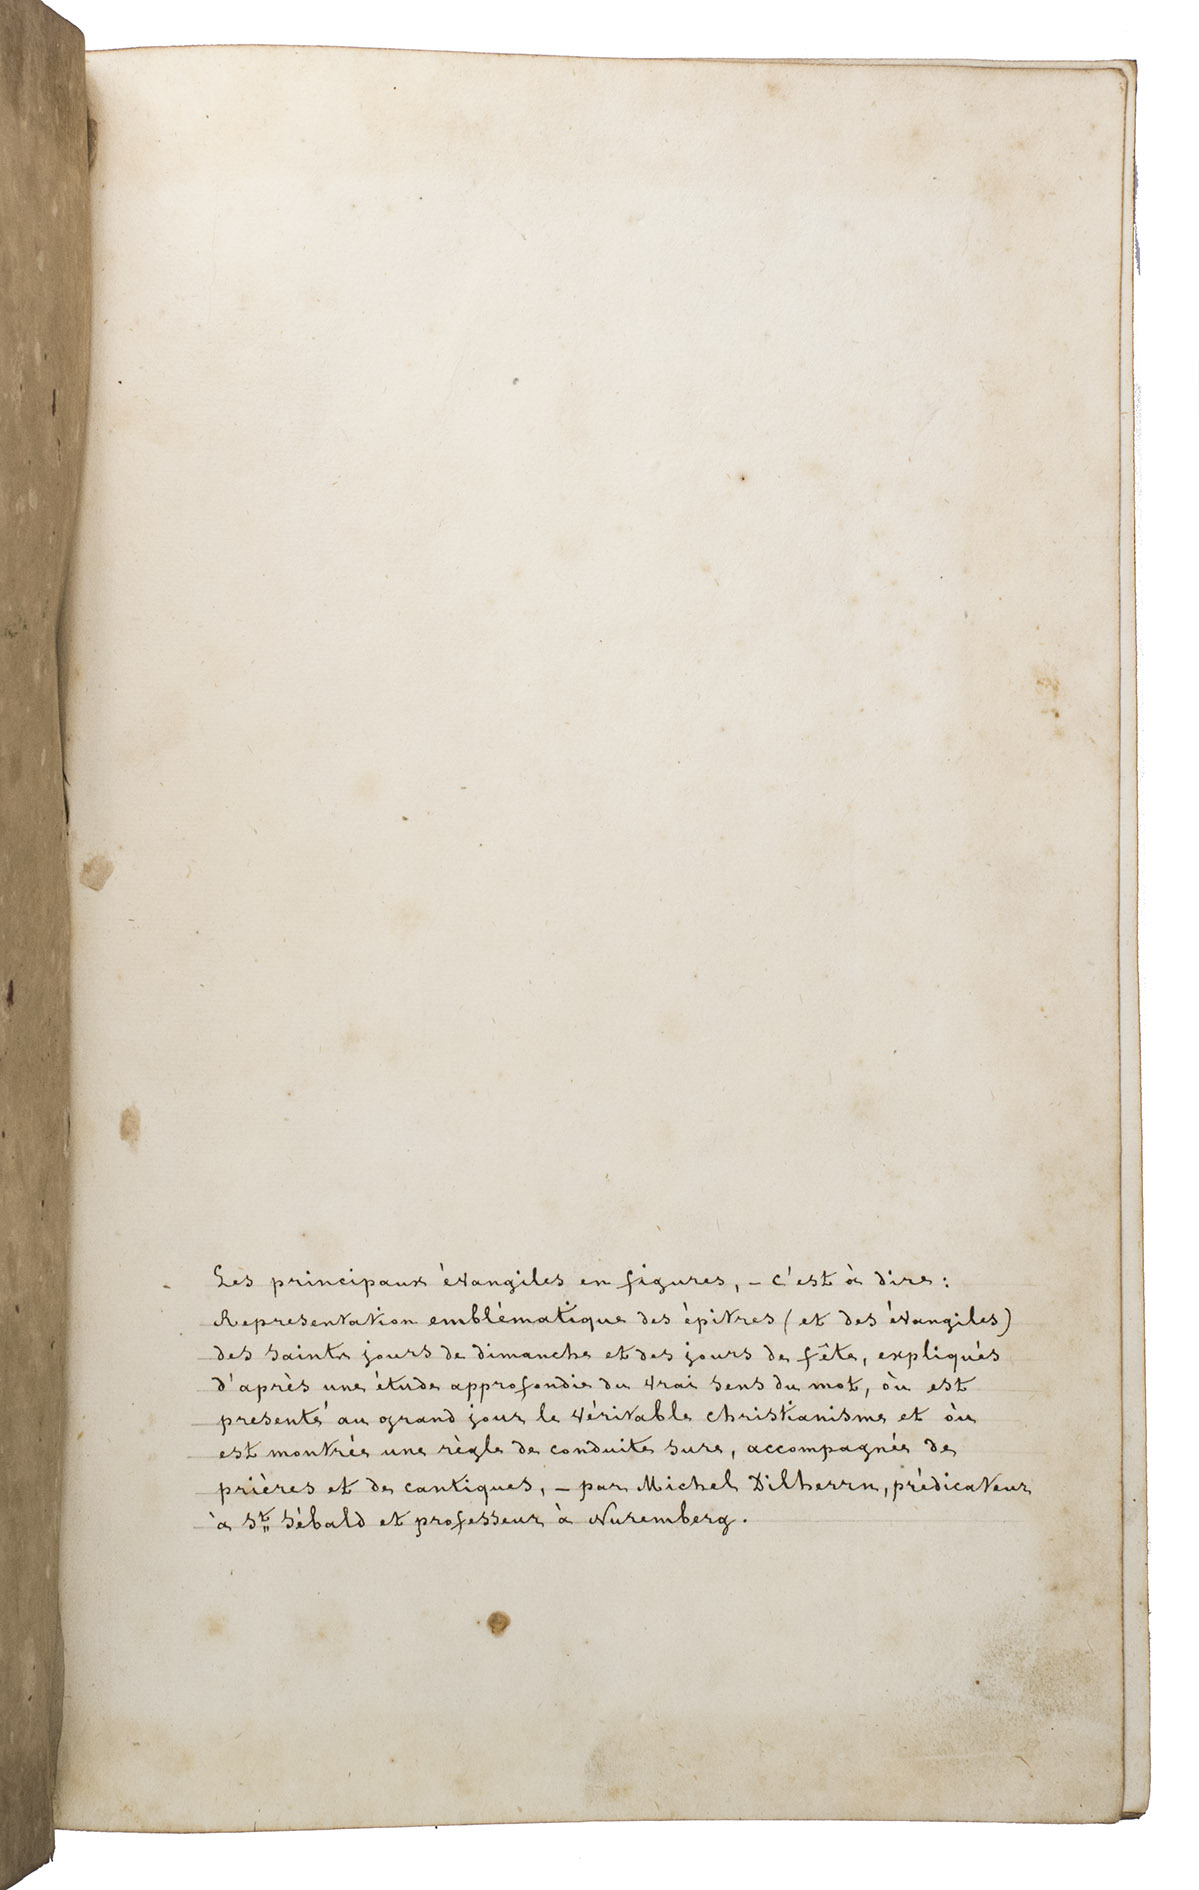 Les principaux évangiles en figures, – c'est à dire :
Representation emblématique des épitres (et des évangiles)
des saints jours de dimanche et des jours de fête, expliqués
d'après une étude approfondie du vrai sens du mot, où est
presenté au grand jour le véritable christianisme et où
est montrée une règle de conduite sure, accompagnée de
prières et de cantiques, – par Michel Dilherrn, prédicateur
à St Sébald et professeur à Nuremberg.